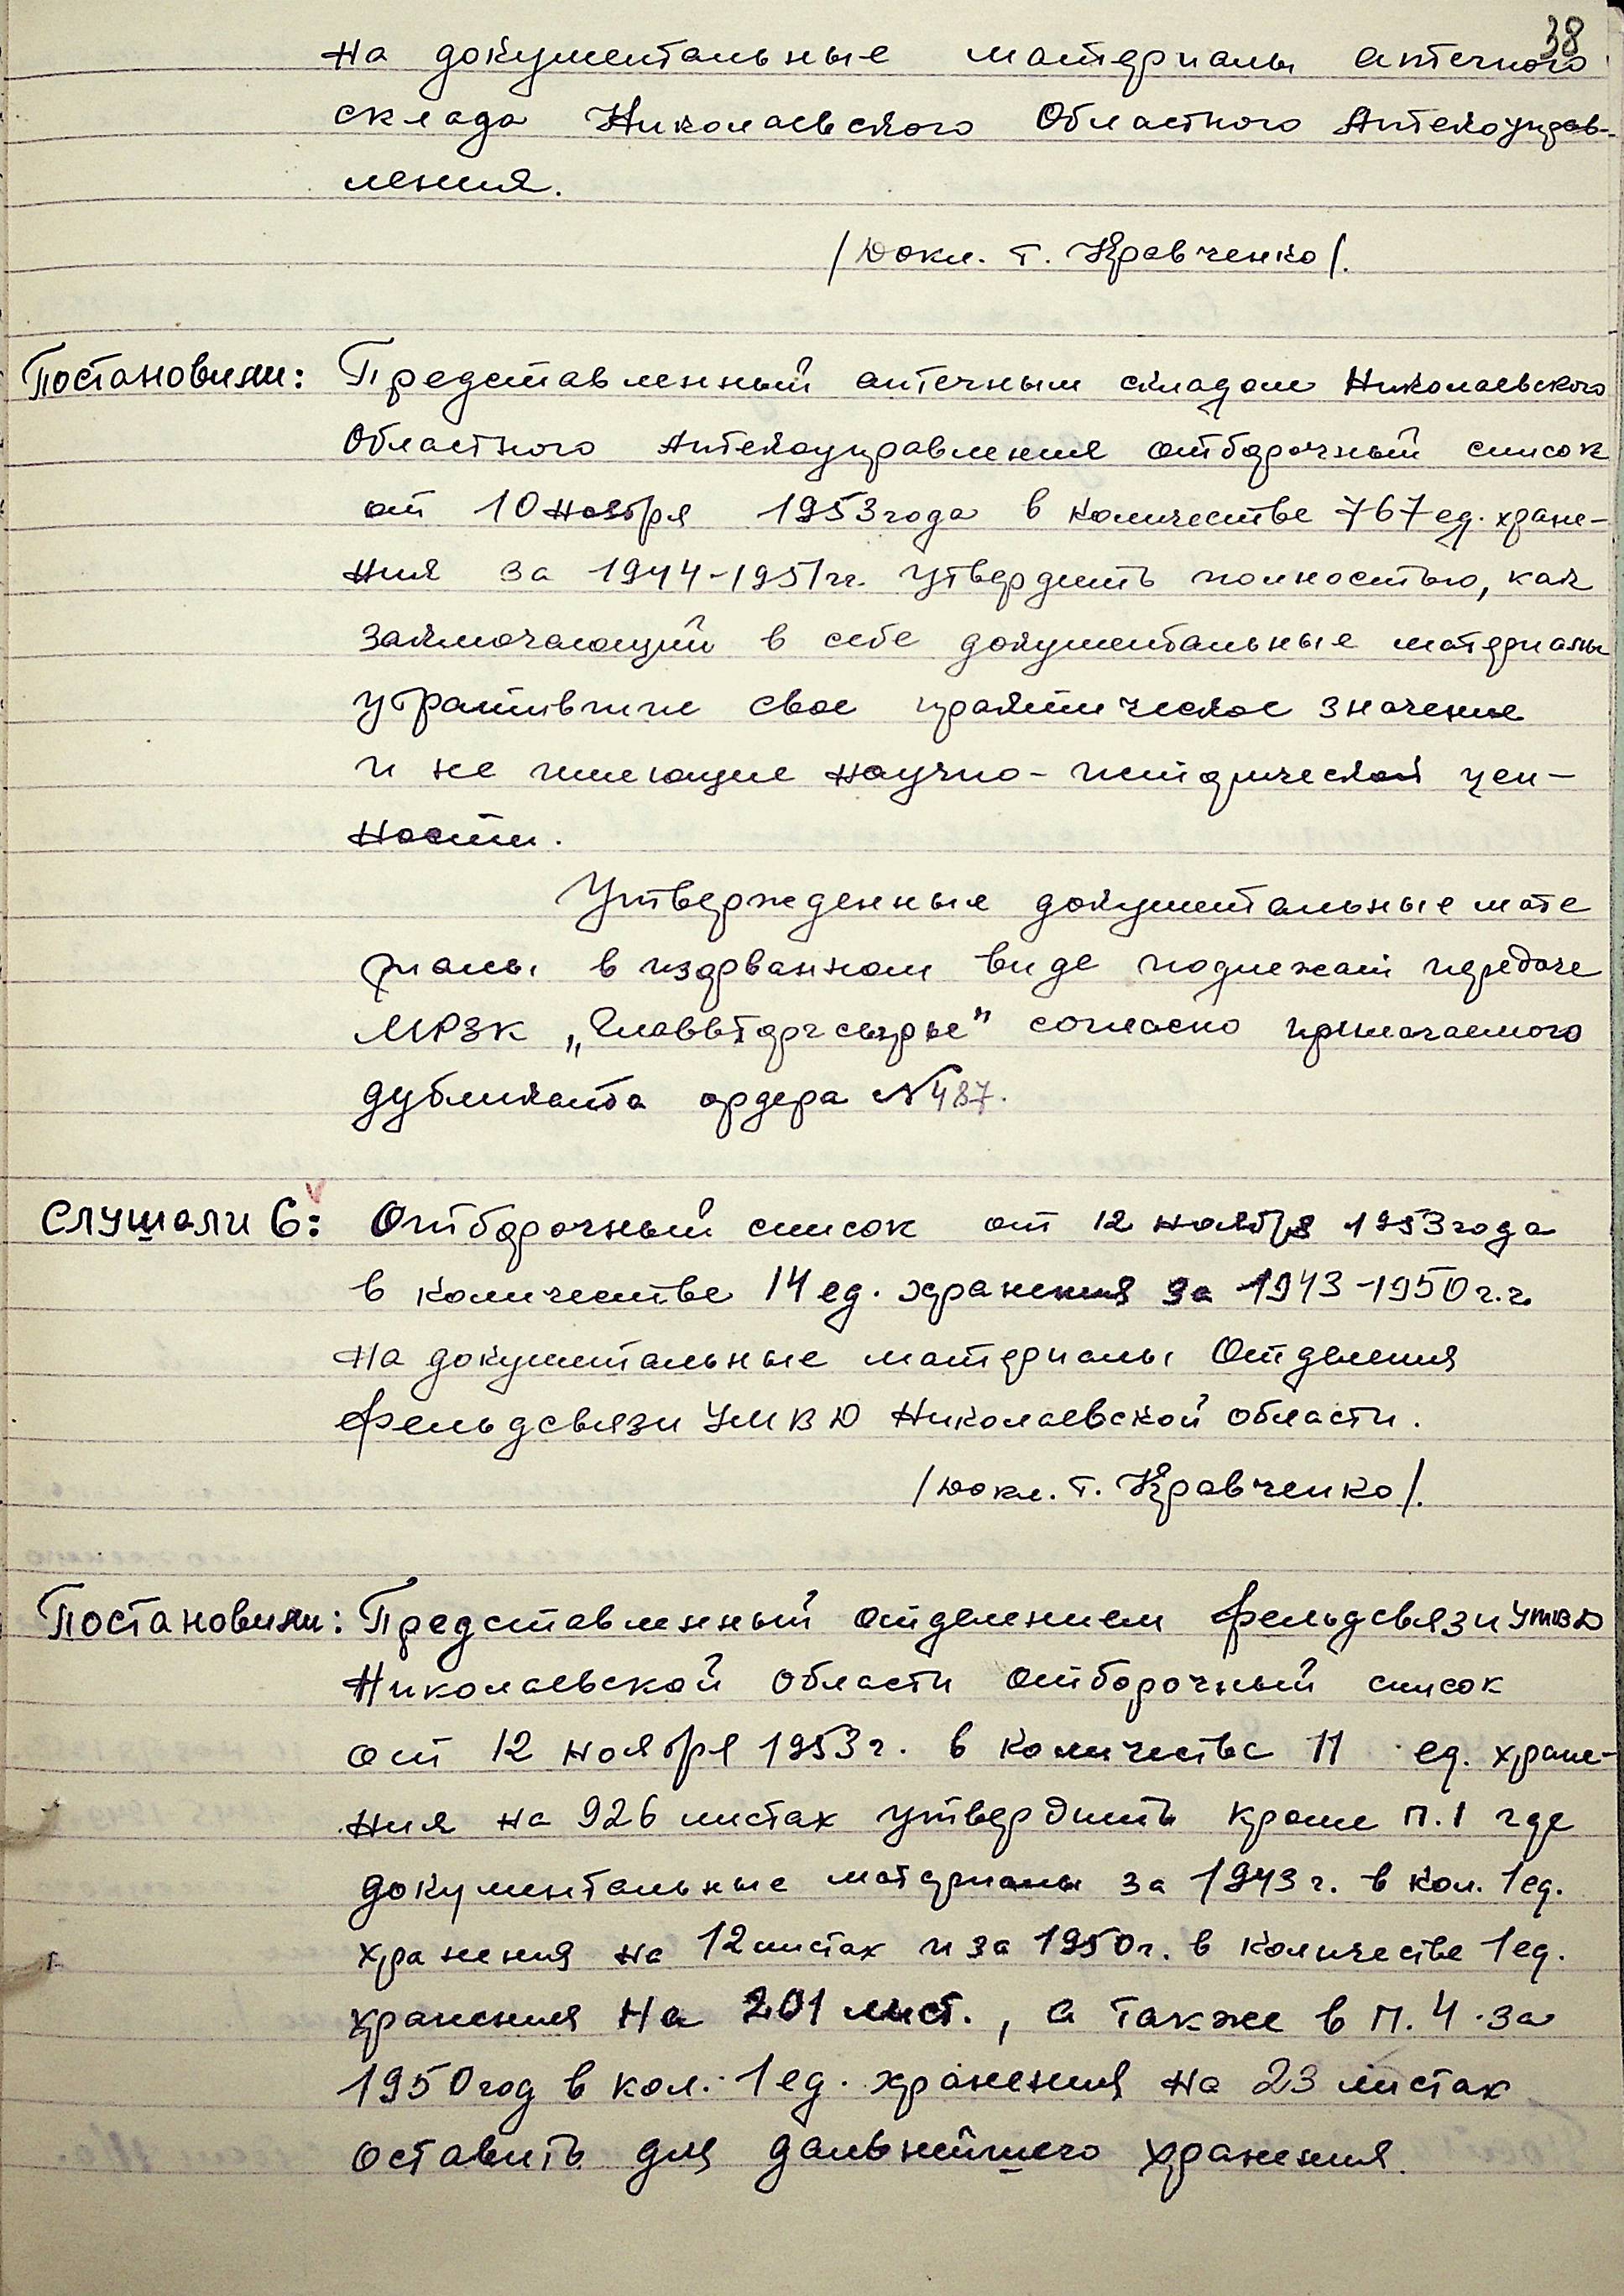 38
на документальные материалы аптечного
склада Николаевского Областного Аптекоуправ-
ления.
/Докл. т. Кравченко/.
Постановили: Представленный аптечным складом Николаевского
Областного Аптекоуправления отборочный список
от 10 ноября 1953 года в количестве 767 ед. хране-
ния за 1944-1951 гг. утвердить полностью, как
заключающий в себе документальные материалы
утратившие свое практическое значение
и не имеющие научно-исторической цен-
ности.
Утвержденные документальные мате
риалы в изорванном виде подлежат передаче
МРЗК „Главвторсырье" согласно прилагаемого
дубликата ордера №487.
Слушали 6: Отборочный список от 12 ноября 1953 года
в количестве 14 ед. хранения за 1943-1950 г.г.
на документальные материалы Отделения
фельдсвязи УМВД Николаевской области.
/Докл. т. Кравченко/.
Постановили: Представленный отделением фельдсвязи УМВД
Николаевской области отборочный список
от 12 ноября 1953 г. в количестве 11 ед. хране-
ния на 926 листах утвердить кроме п.1 где
документальные материалы за 1943 г. в кол. 1 ед.
хранения на 12 листах и за 1950 г. в количестве 1 ед.
хранения на 201 лист., а также в п. 4 за
1950 год в кол. 1 ед. хранения на 23 листах
оставить для дальнейшего хранения.